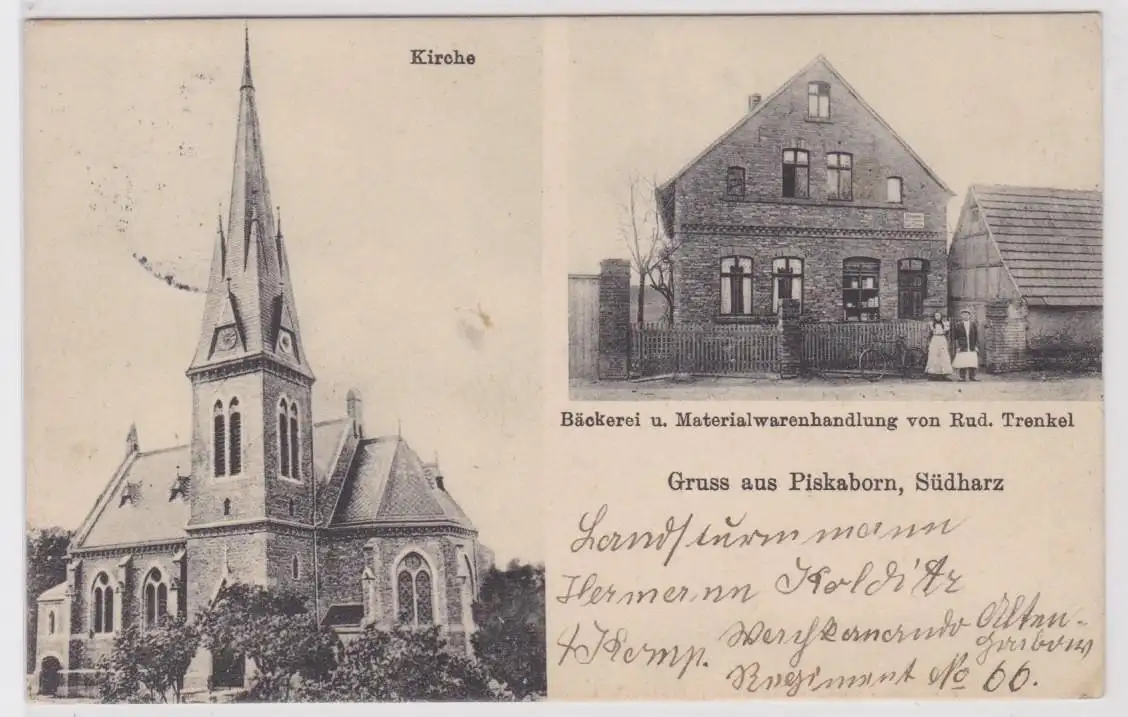 Kirche
Bäckerei u. Materialwarenhandlung von Rud. Trenkel
Gruss aus Piskaborn, Südharz
Landsturmmann
Hermann Kolditz
4 Komp. Wachkomando Alten-
Grabow
Regiment No 66.